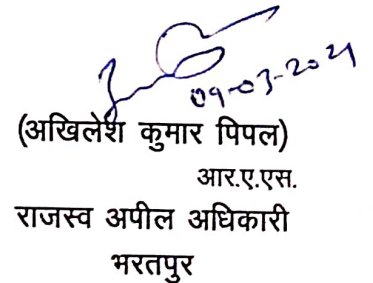 09-03-2021
(अखिलेश कुमार पिपल)
आर.ए.एस.
राजस्व अपील अधिकारी
भरतपुर